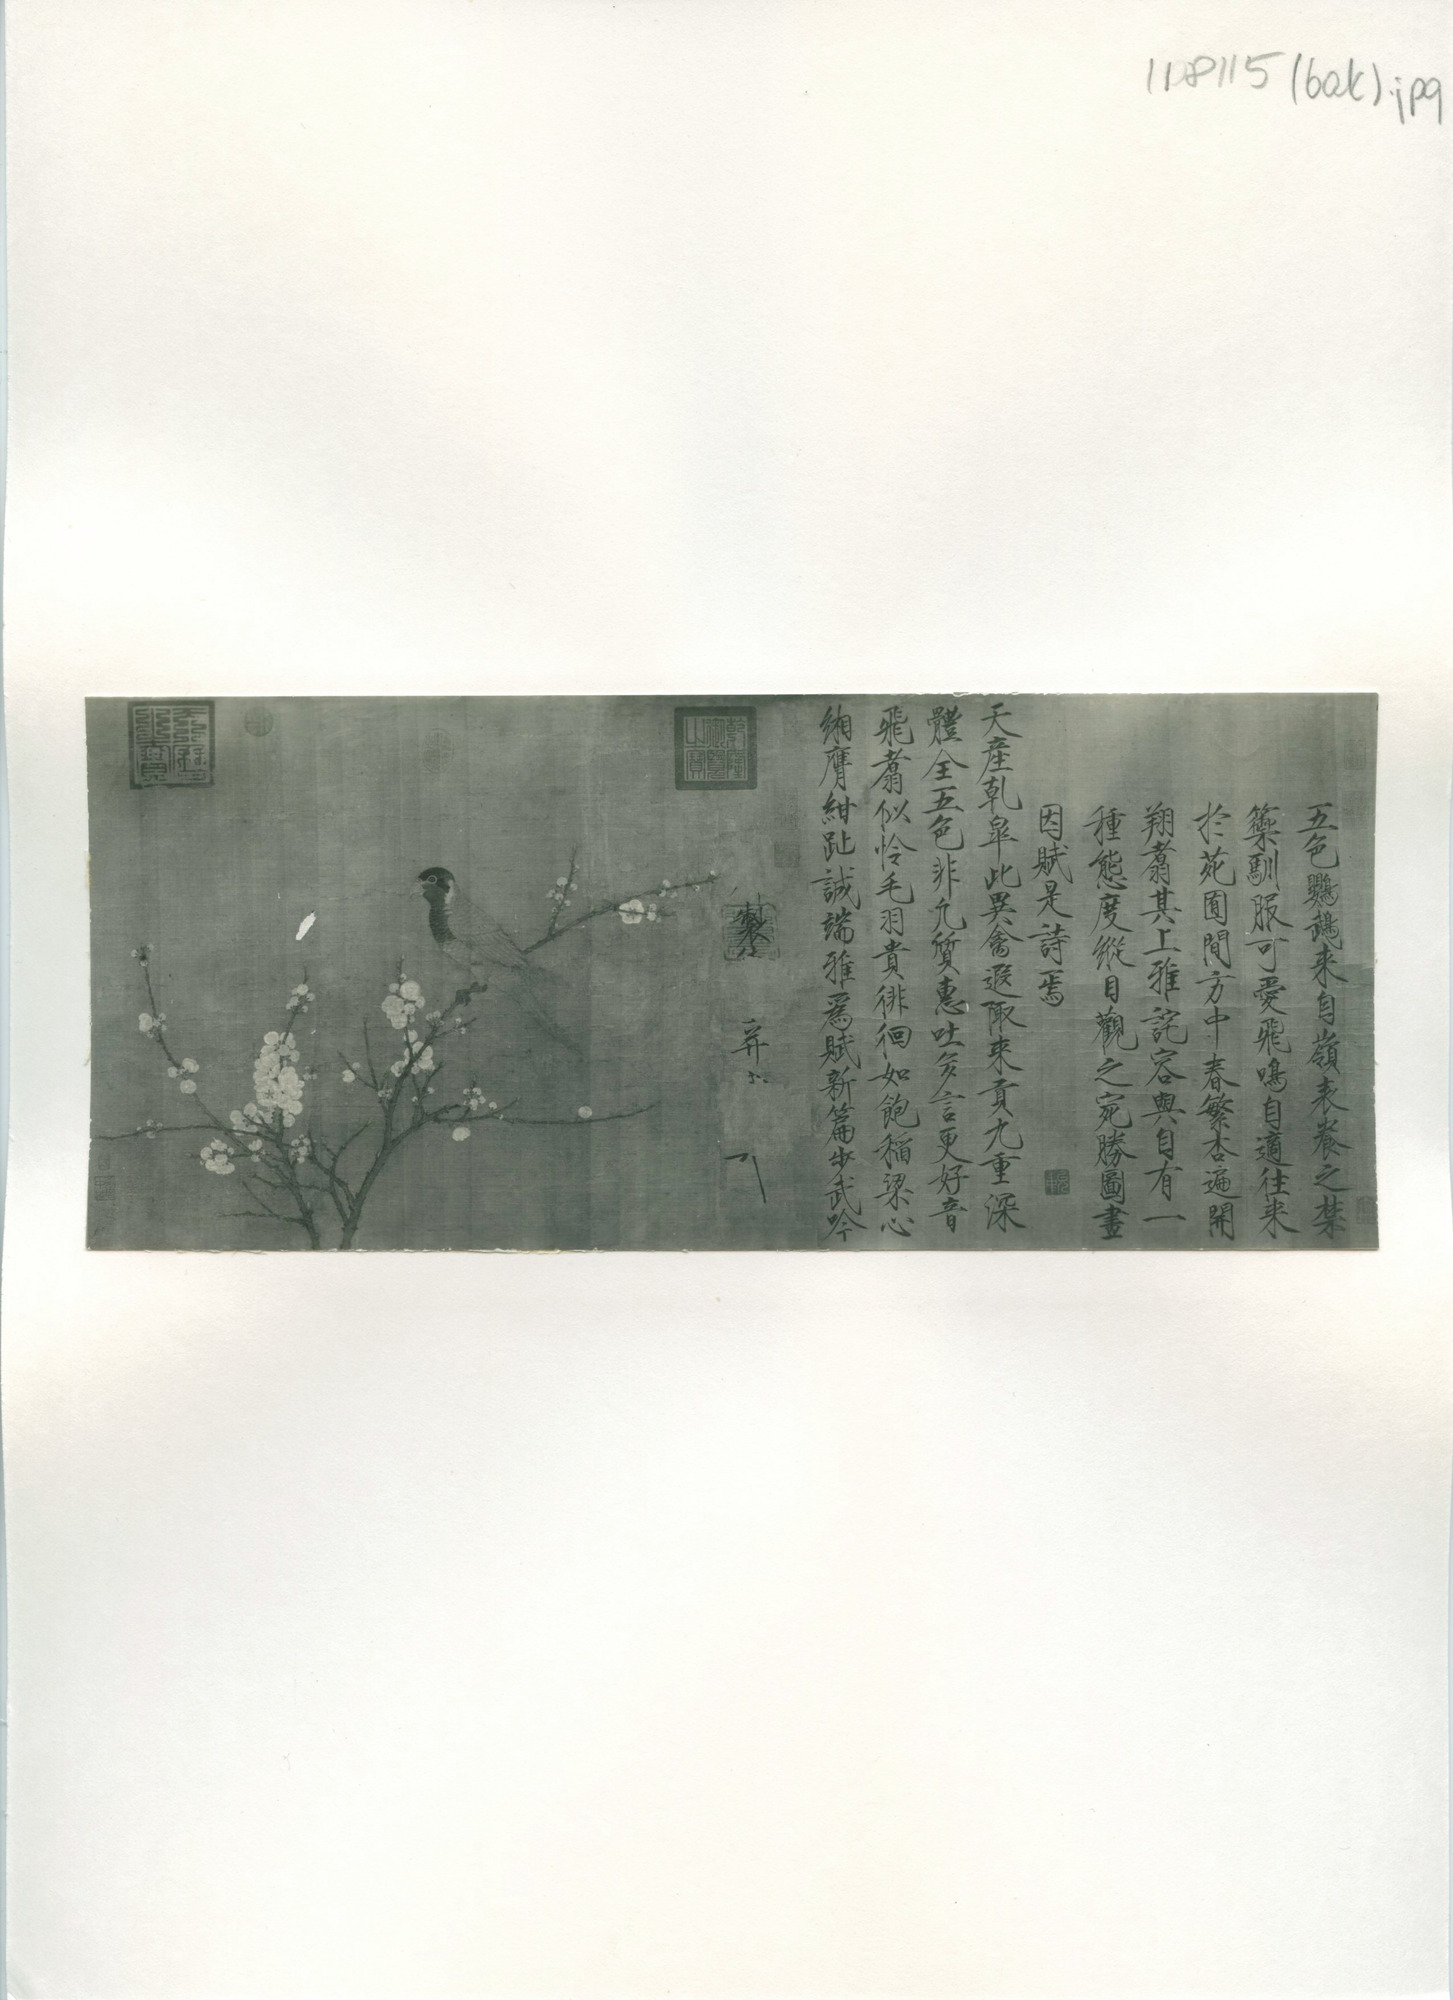 1108115 (bak).jpg
五色鸚鵡来自嶺表養之禁
籞馴服可愛飛鳴自適往来
於苑囿間方中春繁杏遍開
翔翥其上雅詫容與自有一
種態度縱目觀之宛勝圖畫
因賦是詩焉
天産乹皐此異禽遐陬来貢九重深
體全五色非凡質惠吐多言更好音
飛翥似怜毛羽貴徘徊如飽稲粱心
緗膺紺趾誠端雅爲賦新篇步武吟
製
并